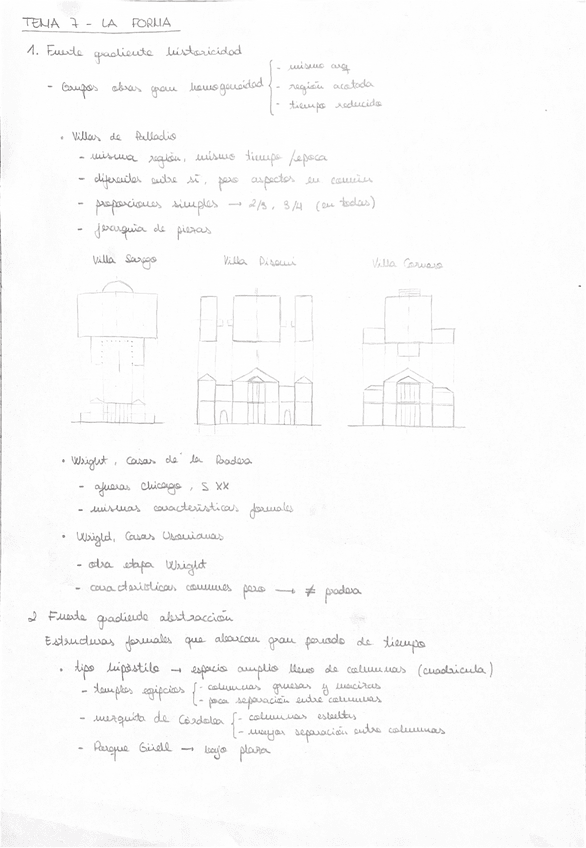 TEMA 7 - LA FORMA
1. Fuerte gradiente historicidad
- Grupos obras gran homogeneidad { - mismo arq
- región acotada
- tiempo reducido
• Villas de Palladio
- misma región, mismo tiempo /época
- diferentes entre sí, pero aspectos en común
- proporciones simples → 2/3, 3/4 (en todas)
- jerarquía de piezas
Villa Sarego Villa Pisani Villa Cornaro
• Wright, Casas de la Pradera
- afueras Chicago, S XX
- mismas características formales
• Wright, Casas Usonianas
- otra etapa Wright
- características comunes pero → ≠ pradera
2 Fuerte gradiente abstracción
Estructuras formales que abarcan gran periodo de tiempo
• tipo hipóstilo → espacio amplio lleno de columnas (cuadrícula)
- templos egipcios { - columnas gruesas y macizas
- poca separación entre columnas
- mezquita de Córdoba { - columnas esbeltas
- mayor separación entre columnas
- Parque Güell → bajo plaza